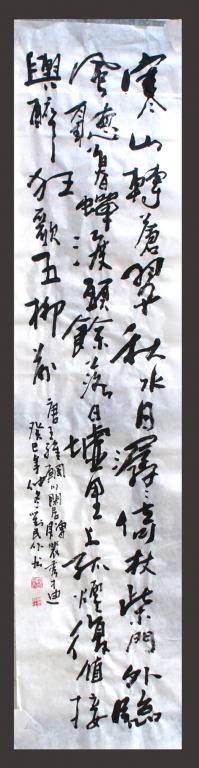 寒山轉蒼翠秋水日潺〻倚杖柴門外臨
風聽暮蟬渡頭餘落日墟里上孤煙復值接
輿醉狂歌五柳前
唐王維輞川閑居贈裴秀才迪
癸巳年仲冬劉民作書